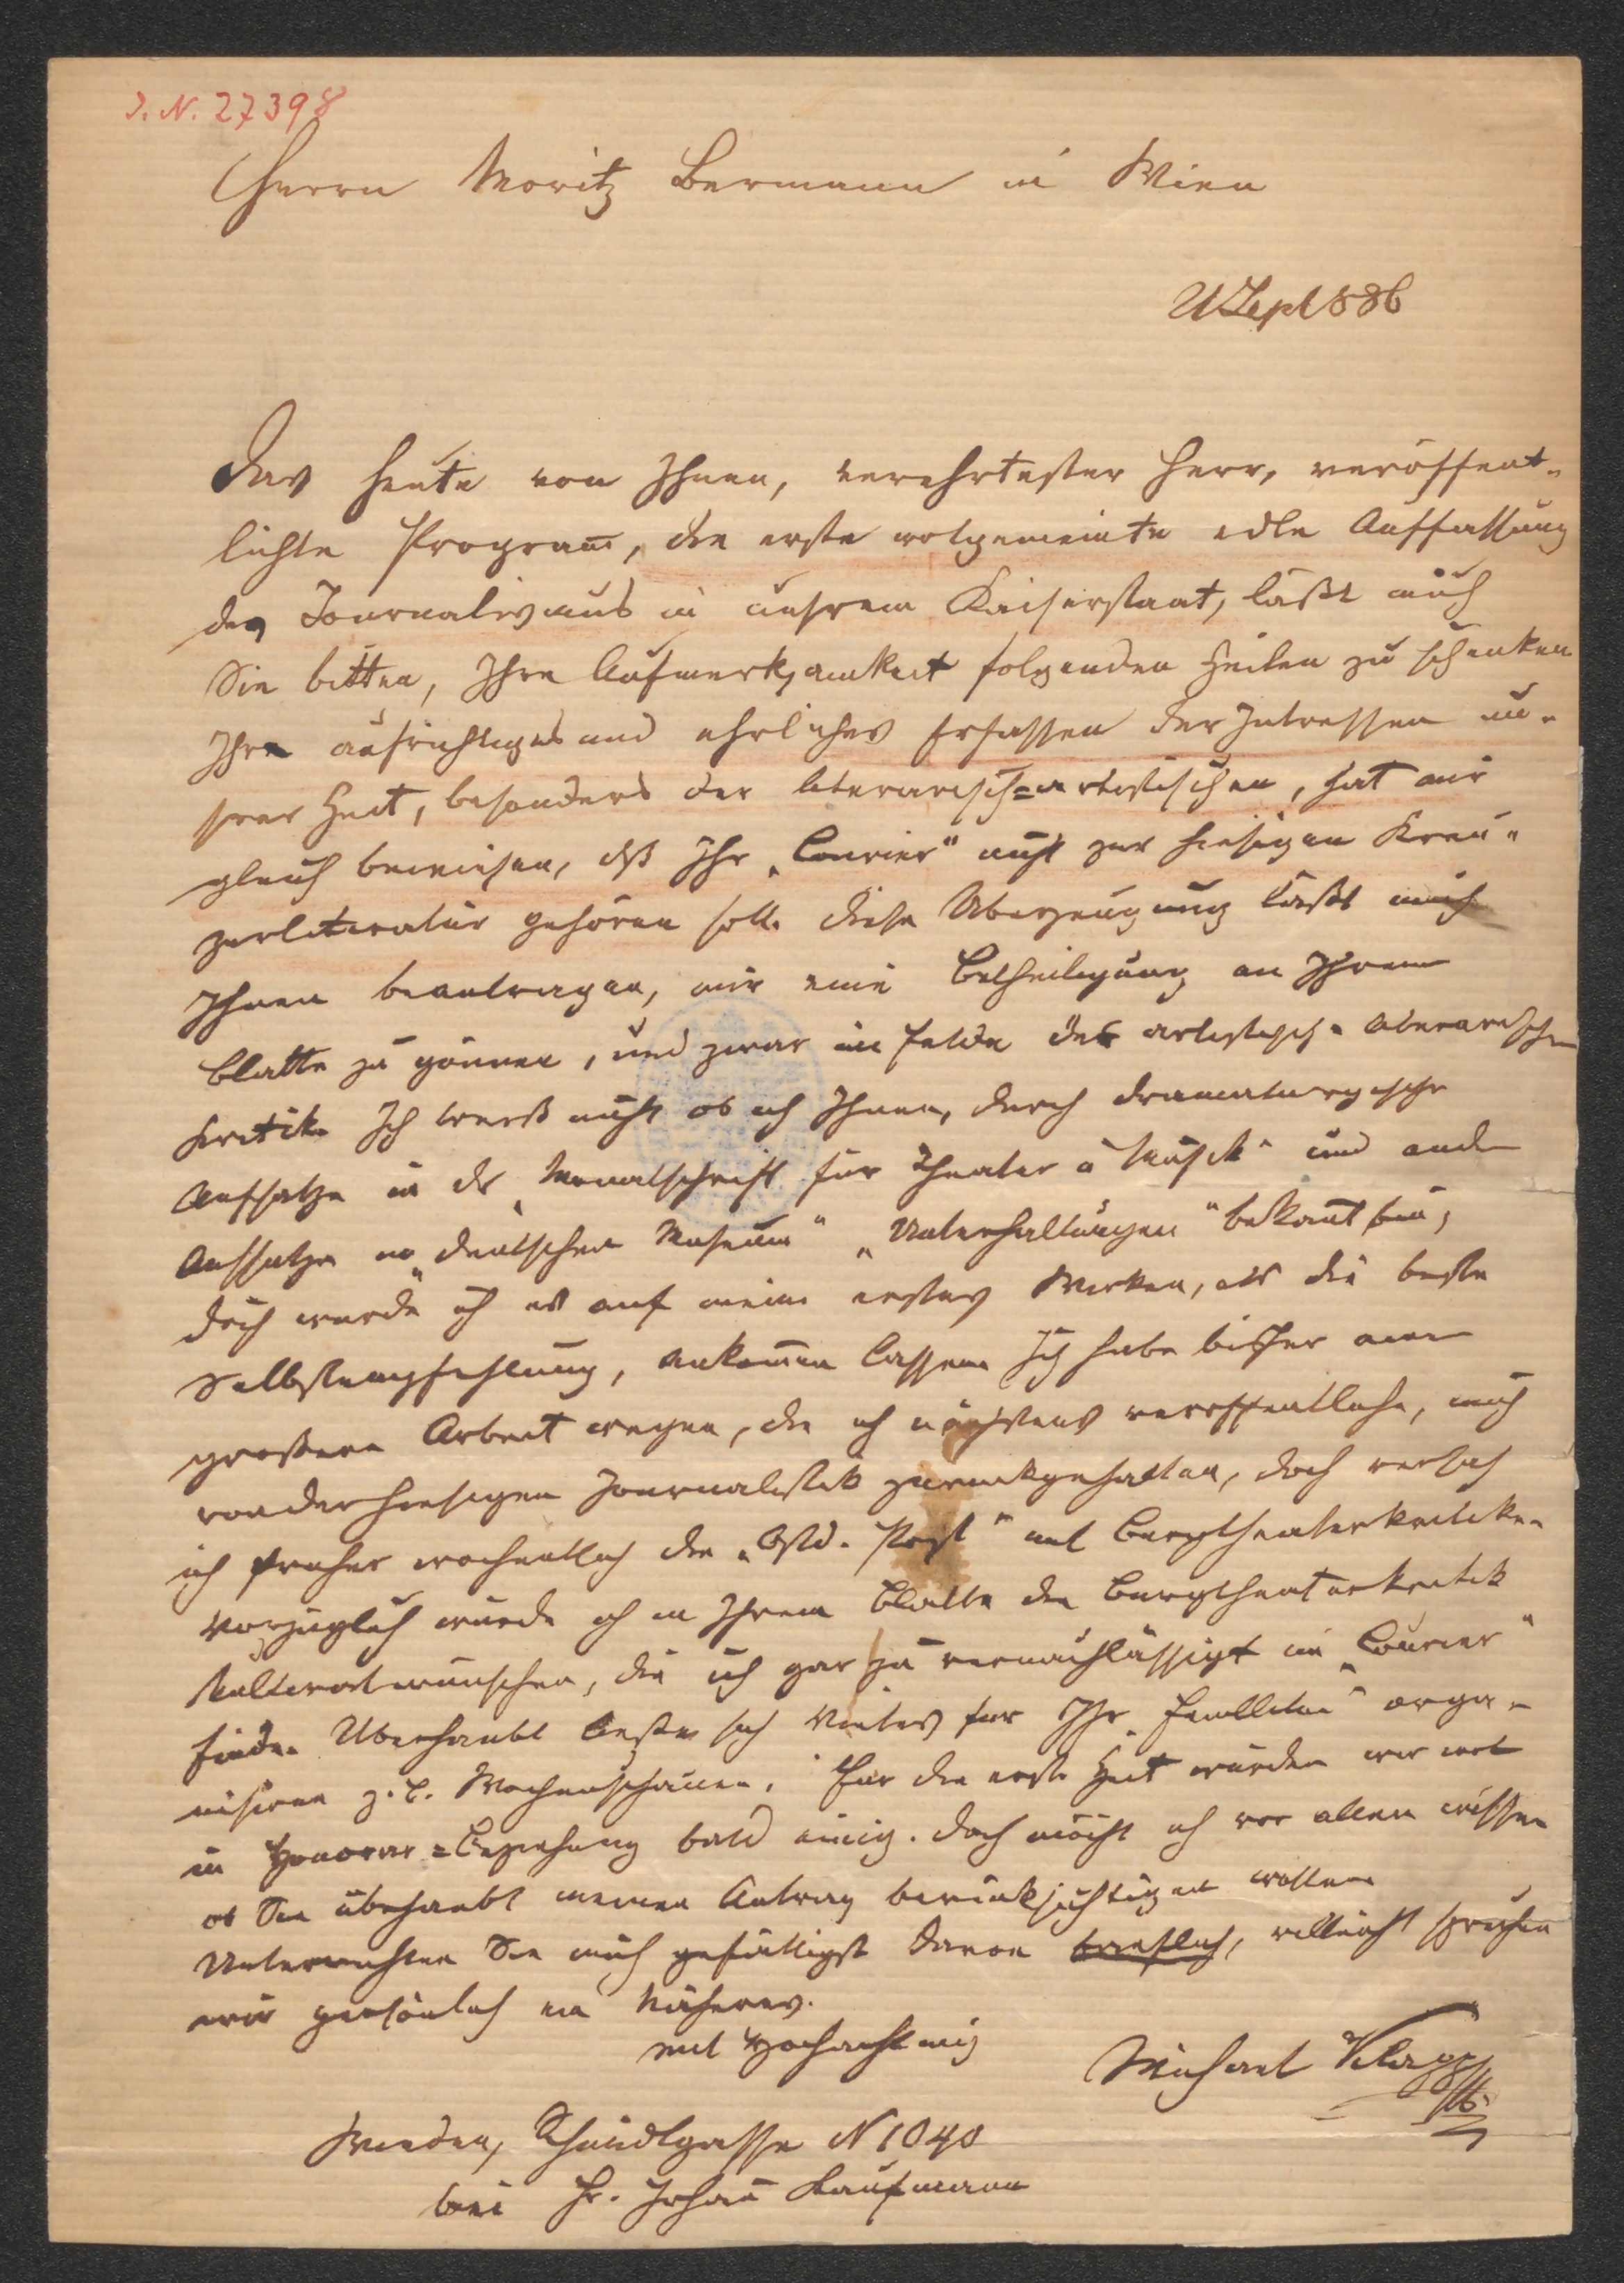 I. N. 27398
Herrn Moritz Bermann in Wien
21 Sept 1886
Das heute von Ihnen, verehrtester Herr, veröffent-
lichte Program̅, die erste wolgemeinte edle Auffassung
des Journalismus in unsrem Kaiserstaat, läßt mich
Sie bitten, Ihre Aufmerksamkeit folgenden Zeilen zu schenken
Ihre aufrichtiges und ehrliches Erfassen der Interessen un-
srer Zeit, besonders der literarisch=artistischen, hat mir
gleich bewiesen, dß Ihr „Courier“ nicht zur hiesigen Kreu-
zerliteratur gehören soll. Diese Uberzeugung läßt mich
Ihnen beantragen, mir eine Betheiligung an Ihrem
Blatte zu gönnen, und zwar im Felde der artistisch-literarischen
Kritik. Ich weiß nicht ob ich Ihnen, durch dramaturgische
Aufsatze in der „Monatschrift für Theater u Musik“ und andre
Aufsatze im „deutschen Museum“ „Unterhaltungen“ bekan̅t bin,
doch wurde ich es auf mein erstes Wirken, als die beste
Selbstempfehlung, ankom̅en lassen. Ich habe bisher einer
großern Arbeit wegen, die ich nächstens veroffentliche, mich
von der hiesigen Journalistik zuruckgehalten, doch versah
ich fruher wochentlich die „Ostd. Post“ mit Burgtheaterkritiken
Vorzuglich wurde ich in Ihrem Blatte die Burgtheaterkritik
kultivirt wunschen, die ich gar zu vernachlässigt im „Courier“
finde. Uberhaubt ließe sich Vieles fur Ihr „Feuilleton“ orga-
nisiren z. B. Wochenschauen. Fur die erste Zeit wurden wir uns
in Honorar=Beziehung bald einig. Doch möcht ich vor allem wissen
ob Sie überhaubt meinen Antrag berücksichtigen wollen.
Unterrichten Sie mich gefälligst davon brieflich, vielleicht sprechen
wir persönlich ein Näheres.
mit Hochachtung
Michael Klapp
Wieden, Schmidlgasse N 1040
bei Hr. Johan̅ Kaufmann